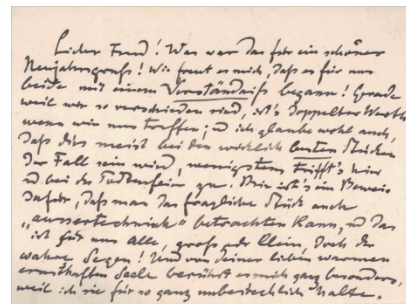 Lieber Freund! Was war das für ein schöner
Neujahrsgruß! Wie freut es mich, daß es für uns
beide mit einem Verständniß begann! Gerade
weil wir so verschieden sind, ist's doppelter Werth
wenn wir uns treffen; und ich glaube wohl auch,
daß dies meist bei den wirklich besten Stücken
der Fall sein wird, wenigstens trifft's hier
und bei der Todtenfeier zu. Mir ist's ein Beweis
dafür, daß man das fragliche Stück auch
"aussertechnisch" betrachten kann, und das
ist für uns alle, groß oder klein, doch der
wahre Segen! Und von deiner lieben warmen
ernsthaften Seele berührt es mich ganz besonders,
weil ich sie für so ganz unbestechlich halte.